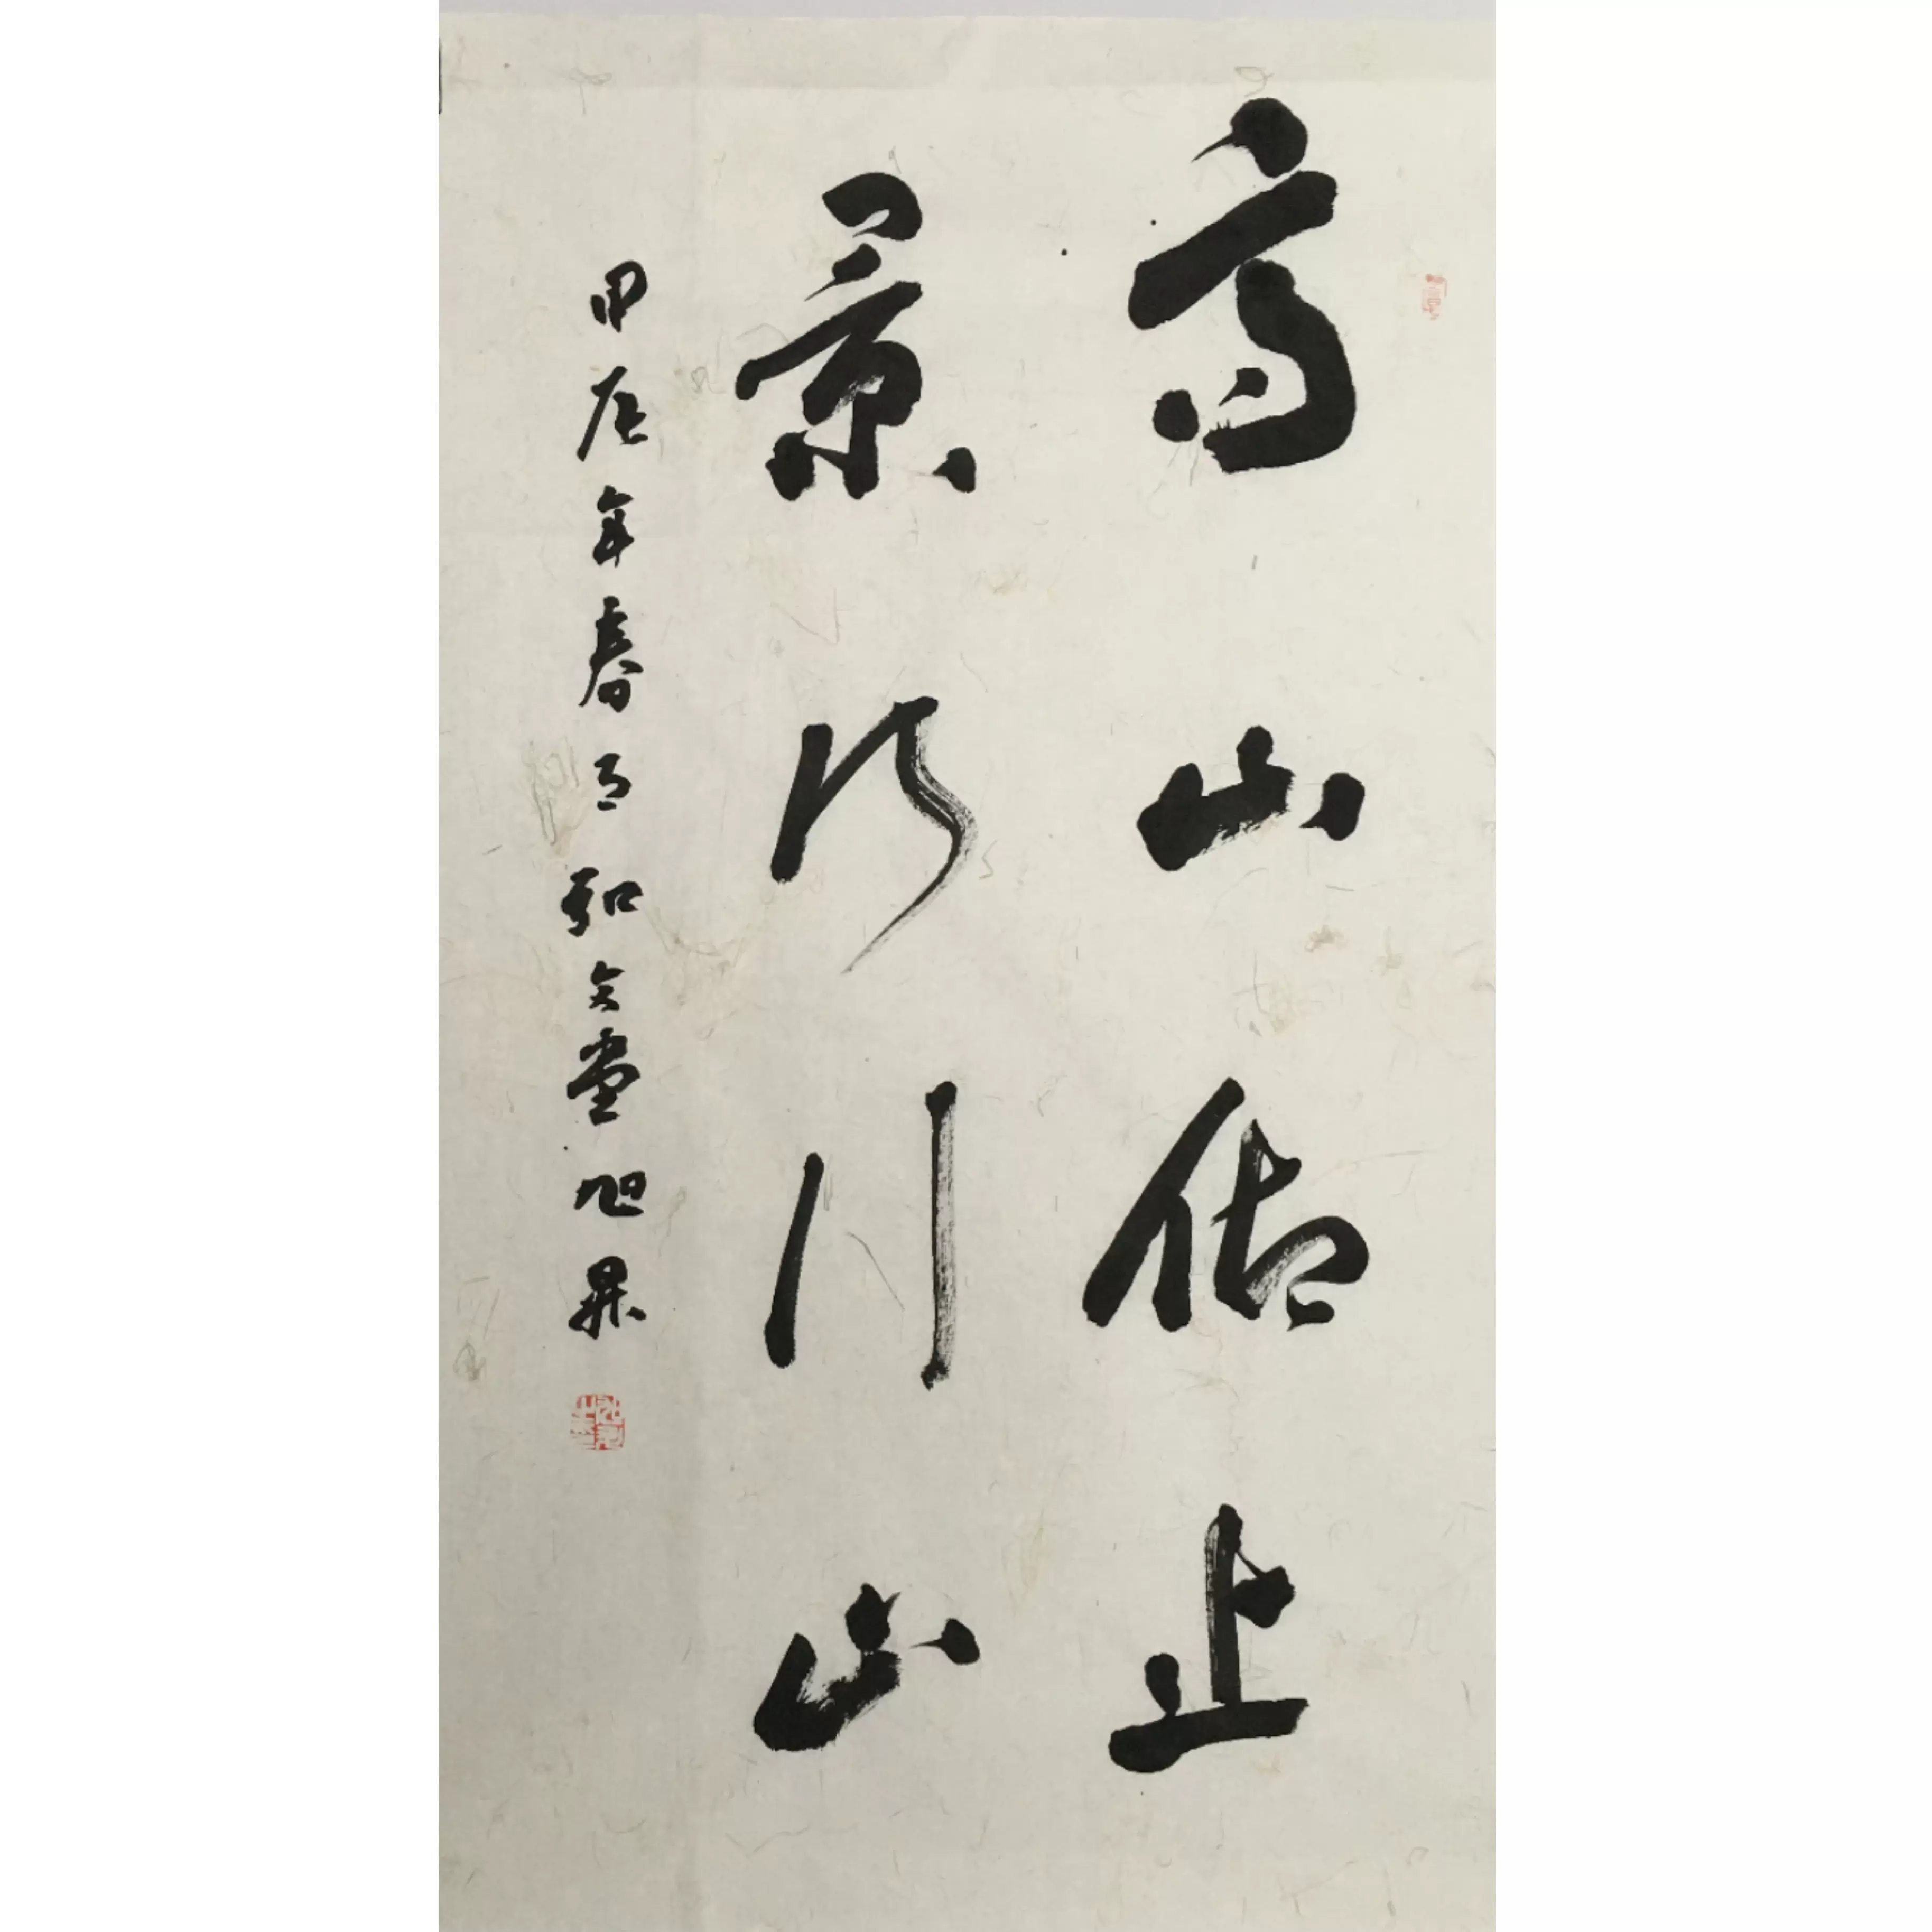 高山仰止
景行行止
甲辰年春月弘文堂旭鼎